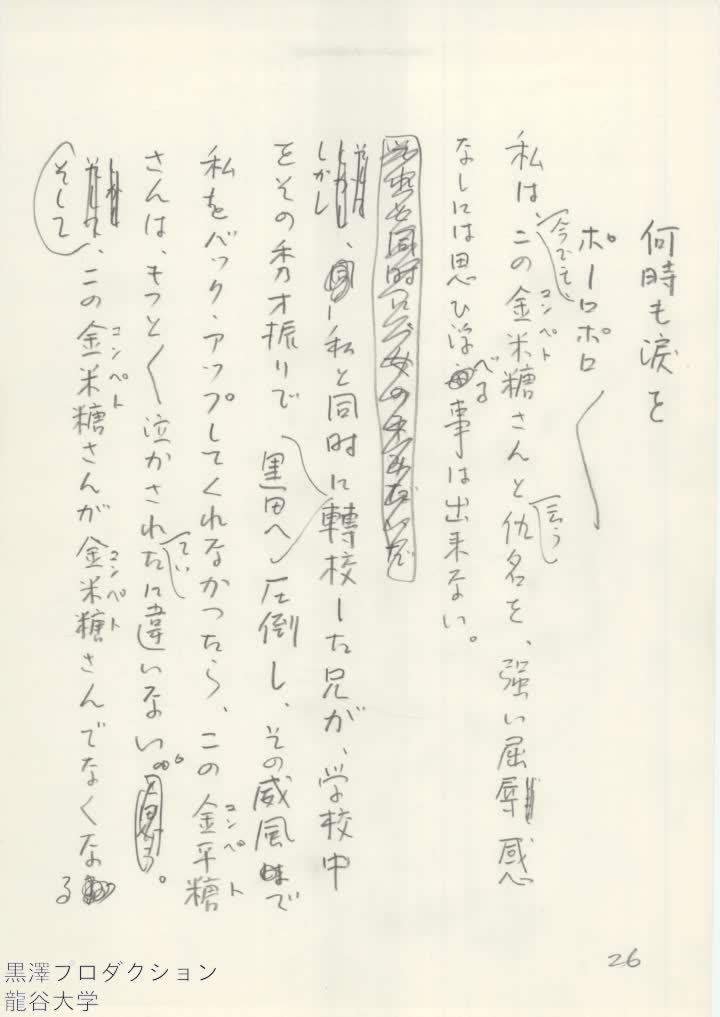 何時も涙を
ポーロポロ
私は、今でも、この金米糖さんと云う仇名を、強い屈辱感
コンペト
なしには思ひ浮べる事は出来ない。
しかし、私と同時に轉校した兄が、学校中
をその秀才振りで圧倒し、その威風で
黒田へ
私をバック・アップしてくれなかったら、この金平糖
コンペト
さんは、もっと〱泣かされていたに違いない。
そして、この金米糖さんが金米糖さんでなくなる
コンペト
コンペト
26
黒澤プロダクション
龍谷大学